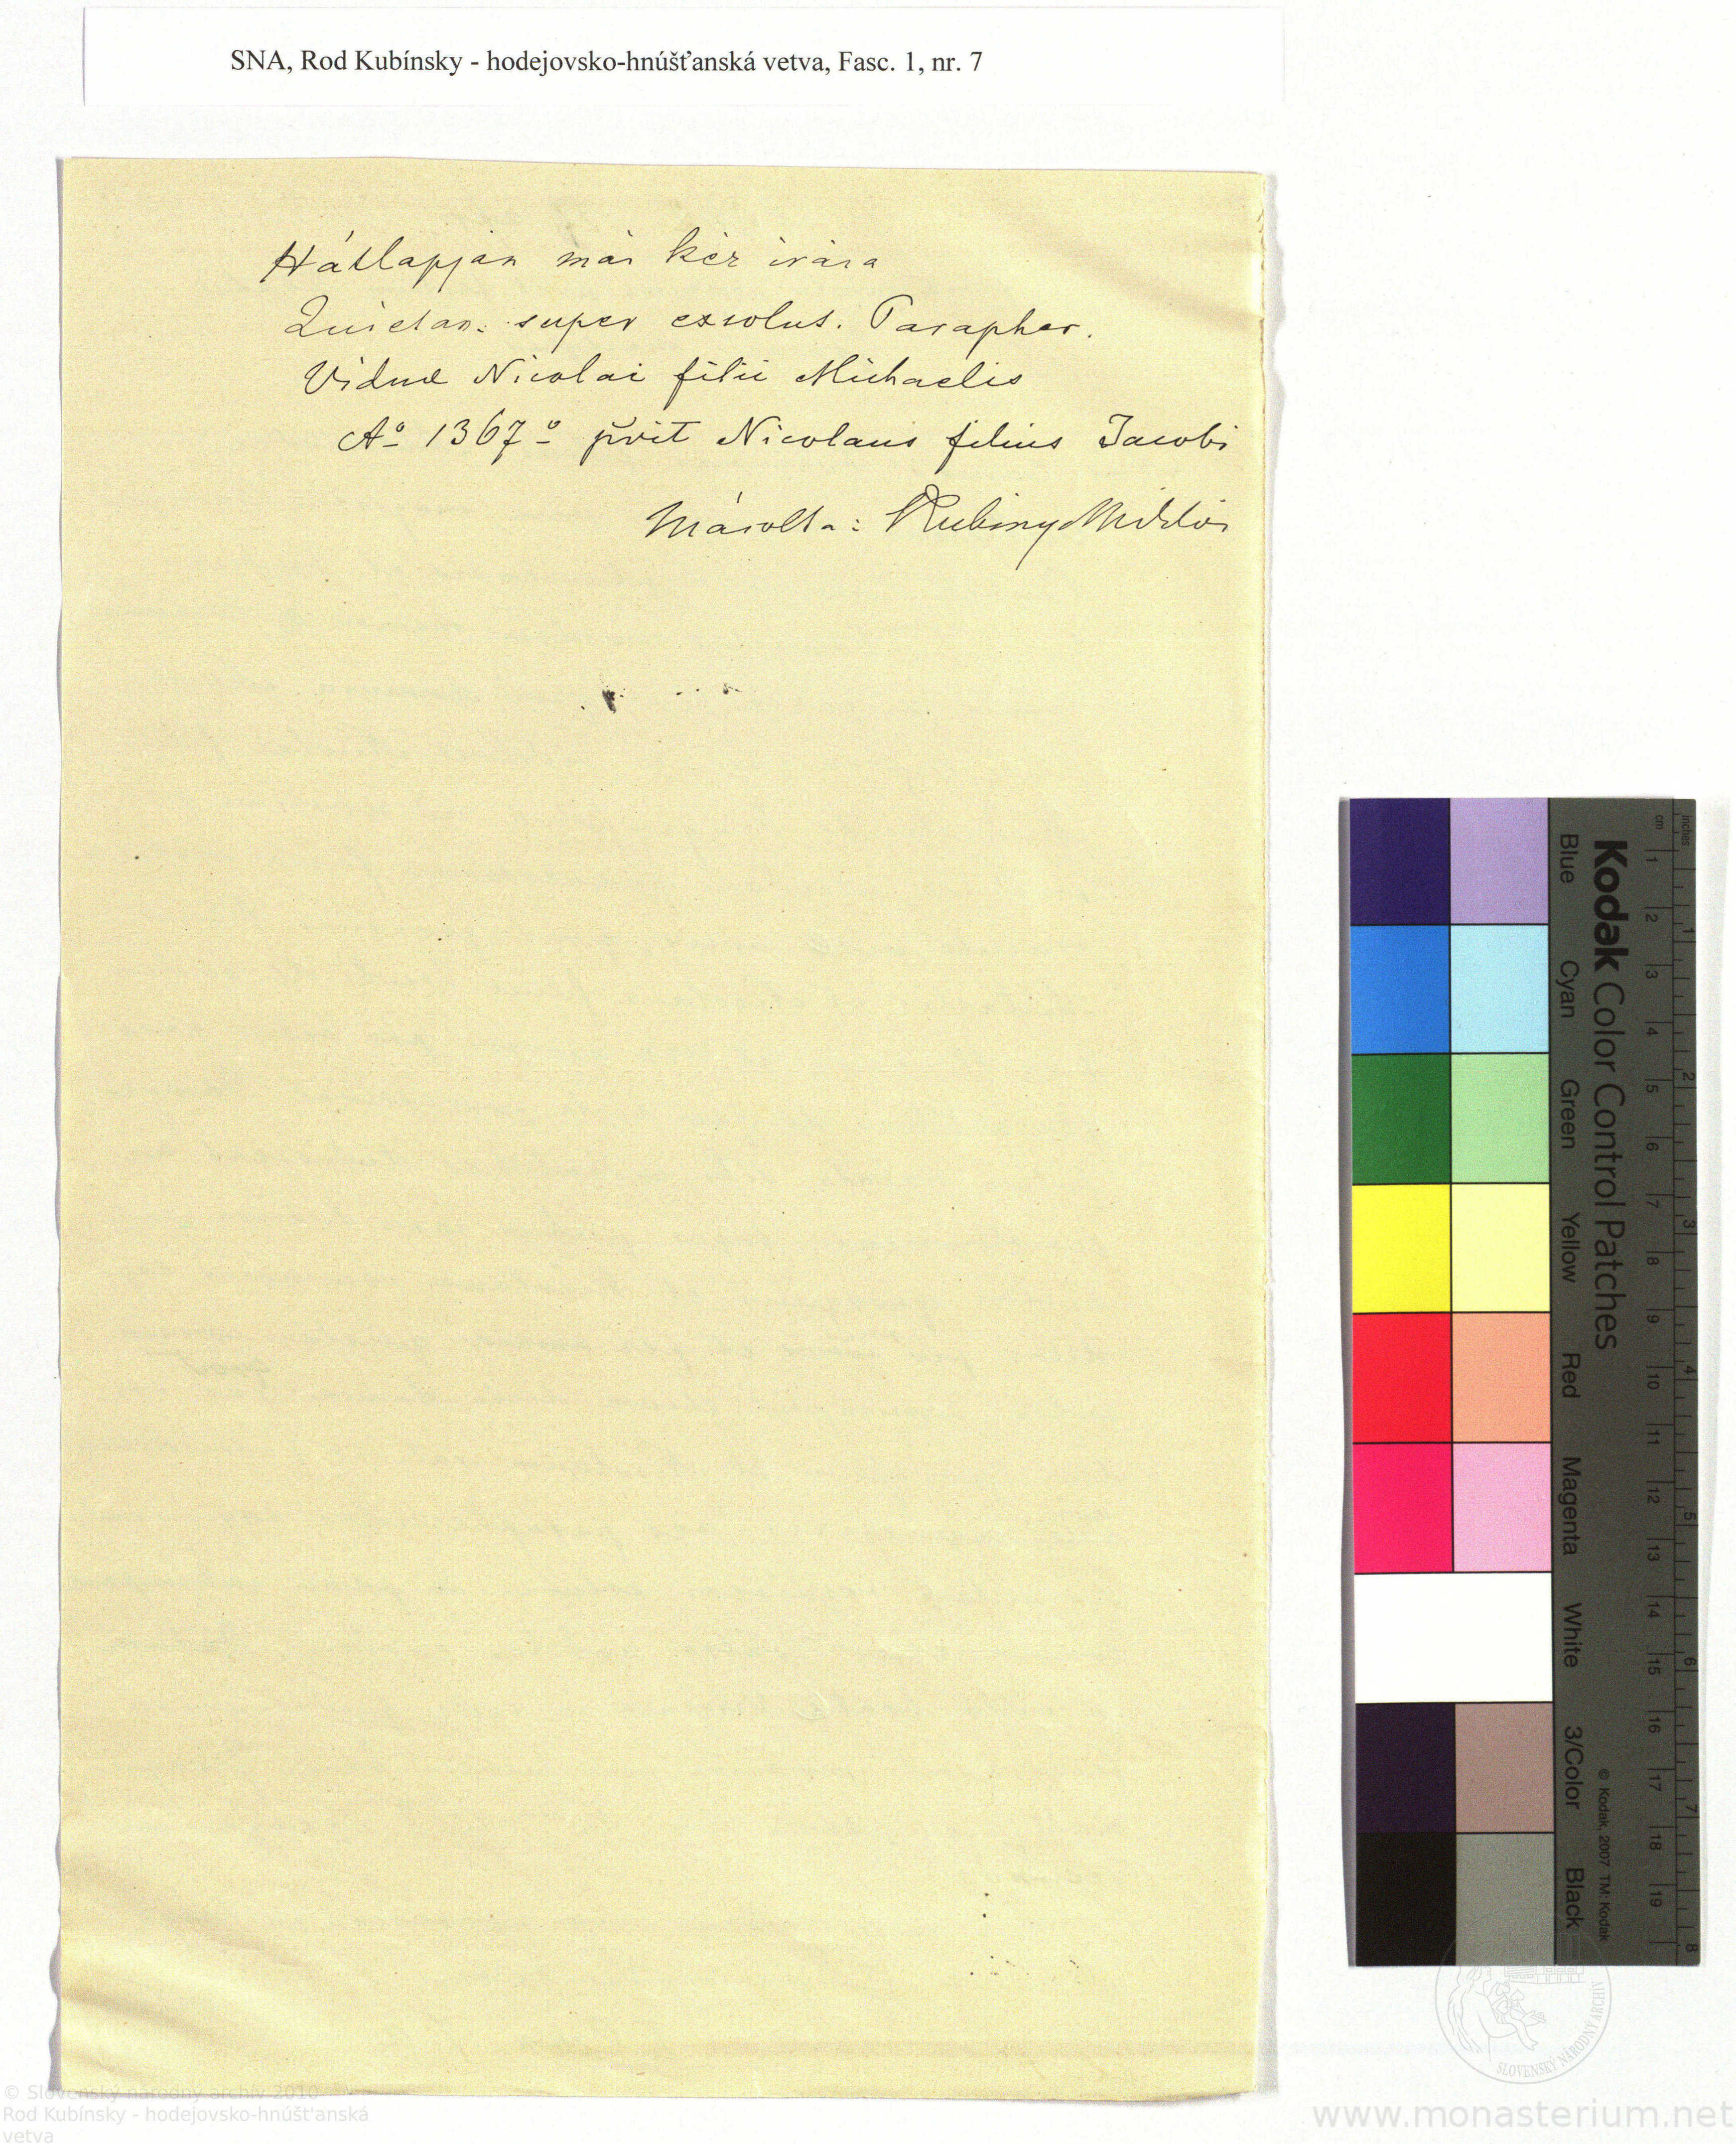 SNA, Rod Kubínsky - hodejovsko-hnúšťanská vetva, Fasc. 1, nr. 7
Hátlapján más kéz írása
Quietan. super exsolut. Parapher.
Viduæ Nicolai filii Michaelis
Aº 1367º Nicolaus filius Jacobi
Másolta: Kubiny Miklós
Kodak Color Control Patches
Blue Cyan Green Yellow Red Magenta White 3/Color Black
© Kodak, 2007 TM: Kodak
inches 1 2 3 4 5 6 7 8
cm 1 2 3 4 5 6 7 8 9 10 11 12 13 14 15 16 17 18 19
SLOVENSKÝ NÁRODNÝ ARCHÍV
© Slovenský národný archív 2010
Rod Kubínsky - hodejovsko-hnúšt'anská
vetva
www.monasterium.net